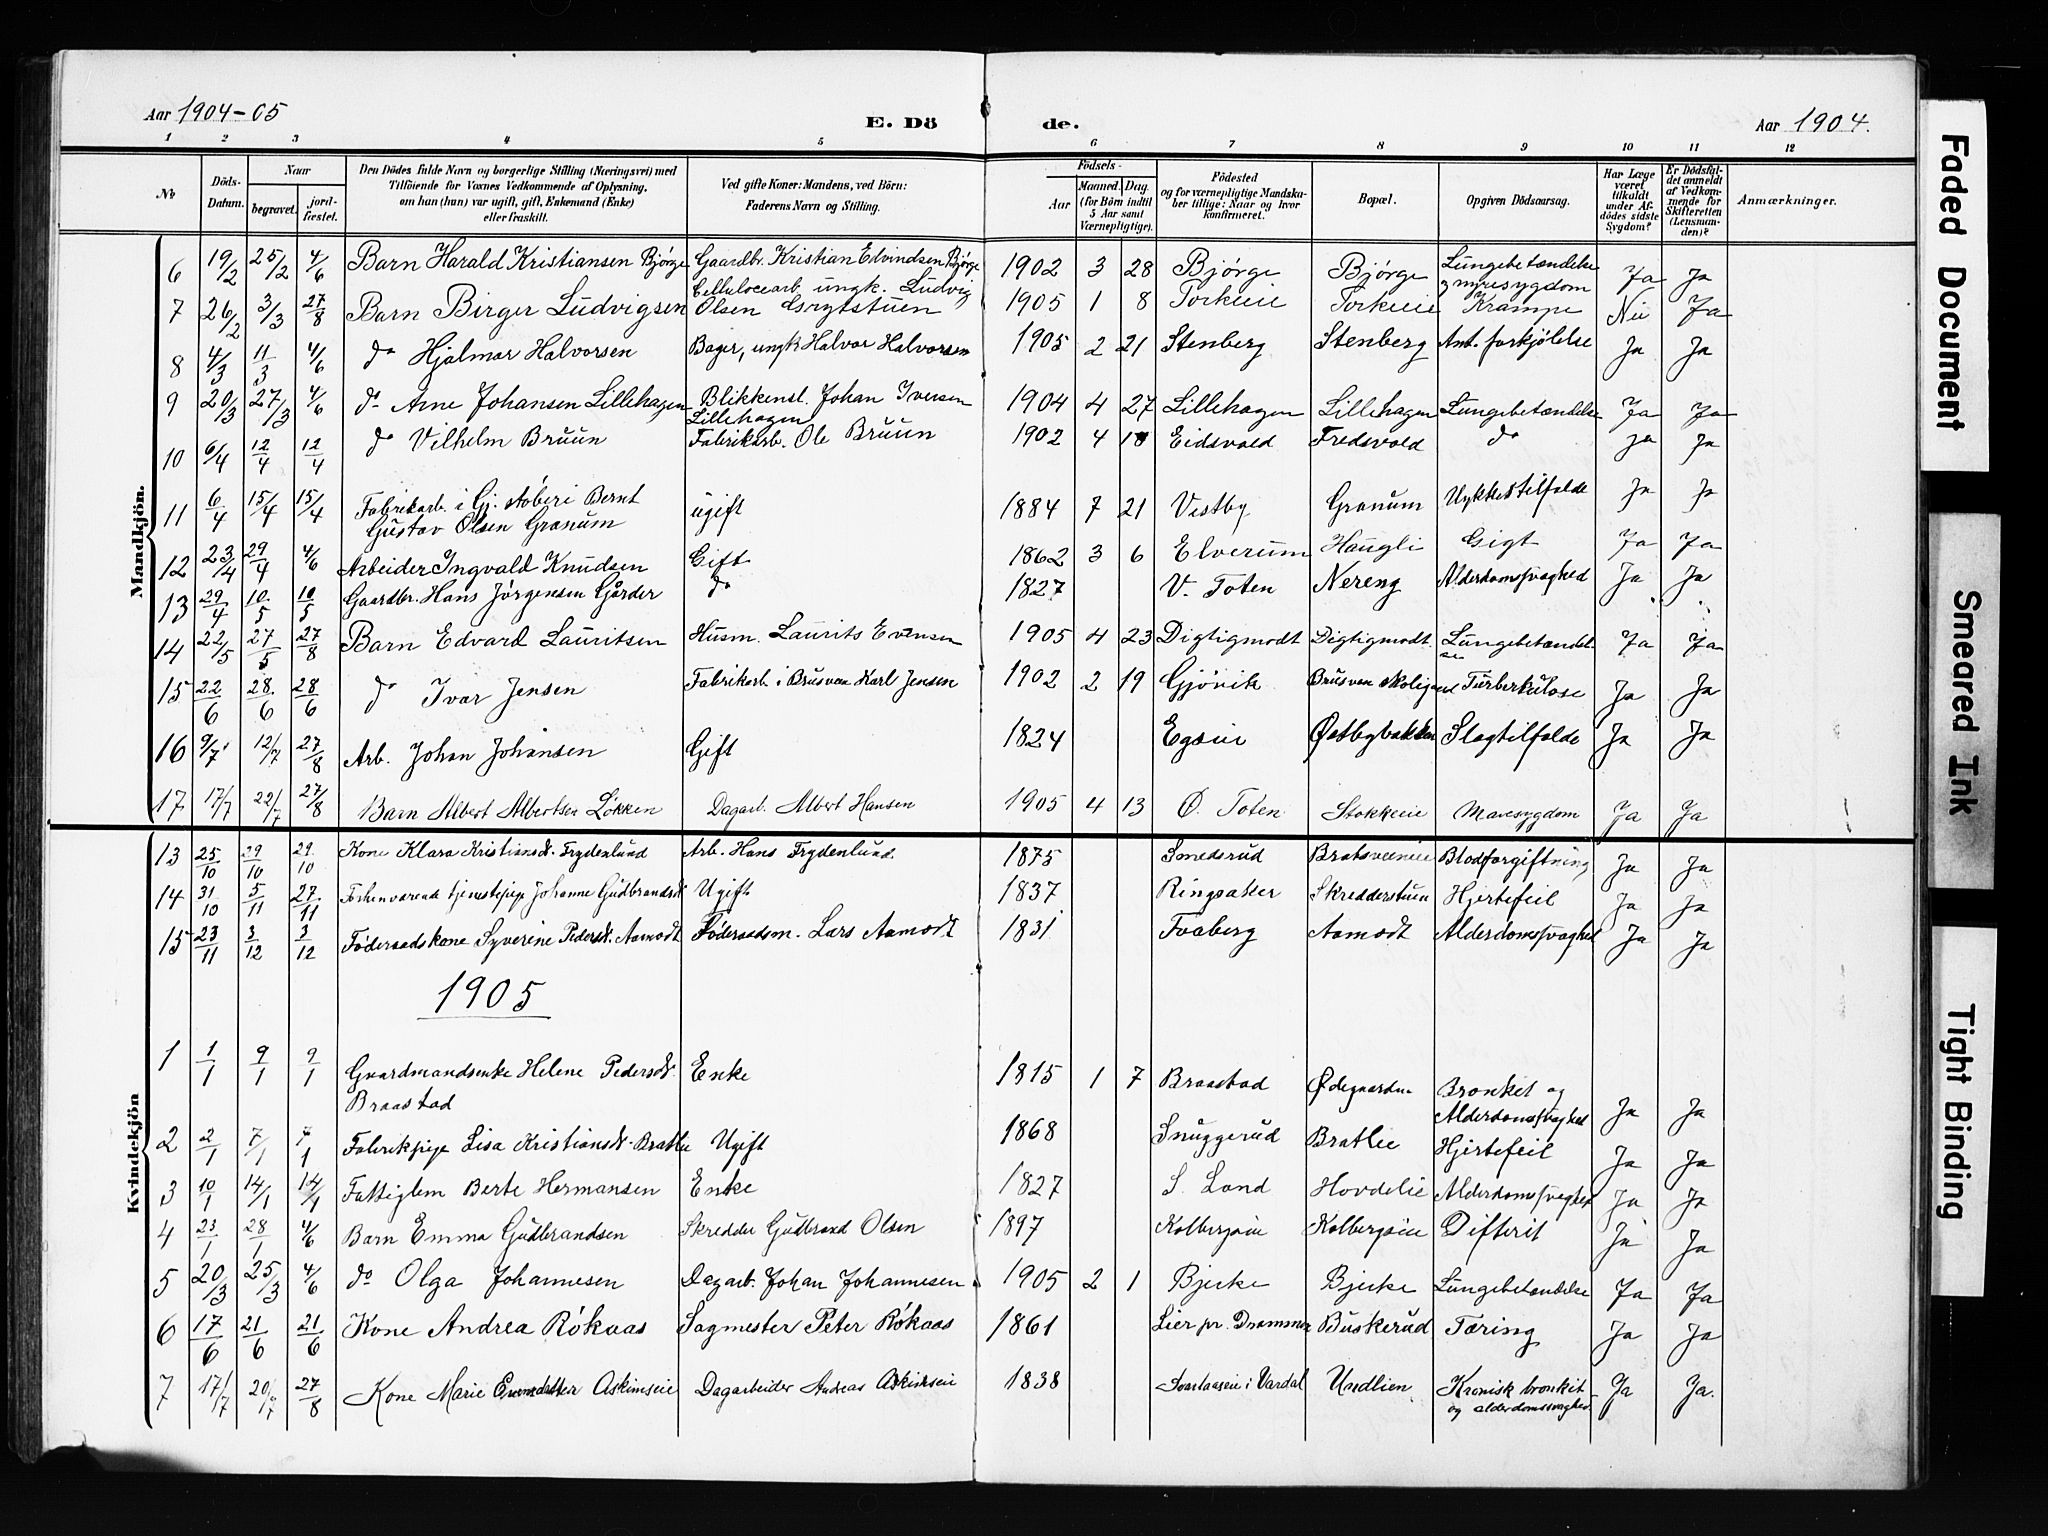 Aar 1904-05
E. Dö
de.
Aar 1904.
1 2 3 4 5 6 7 8 9 10 11 12
№
Döds-Datum.
Naar
begravet.
jord-fæstet.
Den Dödes fulde Navn og borgerlige Stilling (Næringsvei) med
Tilföiende for Voxnes Vedkommende af Oplysning,
om han (hun) var ugift, gift, Enkemand (Enke)
eller fraskilt.
Ved gifte Koner: Mandens, ved Börn:
Faderens Navn og Stilling.
Födsels-
Aar
Maaned. Dag.
(for Börn indtil
5 Aar samt
Værnepligtige).
Födested
og for værnepligtige Mandska-
ber tillige: Naar og hvor
konfirmeret.
Bopæl.
Opgiven Dödsaarsag.
Har Læge
været
tilkaldt
under Af-
dödes sidste
Sygdom?
Er Dödsful-
det anmeldt
af Vedkom-
mende for
Skifteretten
(Lensman-
den)?
Anmærkninger.
Mandkjön.
6 19/2 25/2 4/6 Barn Harald Kristiansen Bjørge Gaardbr. Kristian Edvindsen Bjørge 1902 3 28 Bjørge Bjørge Lungebetændelse Ja Ja
og nyresygdom
Cellulosearb. ungk. Ludvig
7 26/2 3/3 27/8 Barn Birger Ludvigsen Olsen 1905 1 8 Torkeie Torkeie Krampe Nei Ja
8 4/3 11/3 4/6 do Hjalmar Halvorsen Bager, ungk Halvor Halvorsen 1905 2 21 Stenberg Stenberg Ant. forkjølelse Ja Ja
9 20/3 27/3 4/6 do Arne Johansen Lillehagen Blikkensl. Johan Iversen 1904 4 27 Lillehagen Lillehagen Lungebetændelse Ja Ja
Lillehagen
10 6/4 12/4 12/4 do Vilhelm Bruun Fabrikarb. Ole Bruun 1902 4 18 Eidsvold Fredsvold do Ja Ja
11 6/4 15/4 15/4 Fabrikarb. i Gj. støberi Bernt ugift 1884 7 21 Vestby Granum Ulykkestilfælde Ja Ja
Gustav Olsen Granum
12 23/4 29/4 4/6 Arbeider Ingvald Knudsen Gift 1862 3 6 Elverum Haugli Gigt Ja Ja
13 29/4 10/5 10/5 Gaardbr. Hans Jørgensen Gårder do 1827 V. Toten Nereng Alderdomssvaghed Ja Ja
14 22/5 27/5 27/8 Barn Edvard Lauritsen Husm. Laurits Evensen 1905 4 23 Digtigmodt Digtigmodt Lungebetændel-
se Ja Ja
15 22/6 28/6 28/6 do Ivar Jensen Fabrikarb. i Brusveen Karl Jensen 1902 2 19 Gjøvik Brusveen Turberkulose Ja Ja
16 9/7 12/7 27/8 Arb. Johan Johansen Gift 1824 Egseie Østbybakken Slagtilfælde Ja Ja
17 17/7 22/7 27/8 Barn Albert Albertsen Løkken Dagarb. Albert Hansen 1905 4 13 Ø. Toten Stokkeie Mavesygdom Ja Ja
Kvindekjön
13 25/10 29/10 29/10 Kone Klara Kristiansdt. Frydenlund Arb. Hans Frydenlund. 1875 Smedsrud Bratsveeneie Blodforgiftning Ja Ja
14 31/10 5/11 27/11 Forhenværende tjenestepige Johanne Gudbrandsdt Ugift 1837 Ringsaker Skredderstuen Hjertefeil Ja Ja
15 23/11 3/12 3/12 Föderaadskone Syverine Pedersdt. Aamodt Föderaadsm. Lars Aamodt 1831 Faaberg Aamodt Alderdomssvaghed Ja Ja
1905
1 1/1 9/1 9/1 Gaardmandsenke Helene Pedersdt. Enke 1815 1 7 Braastad Ødegaarden Bronkit og
Braastad Alderdomssvaghed Ja Ja
2 2/1 7/1 7/1 Fabrikpige Lisa Kristiansdt. Bratlie Ugift 1868 Snuggerud Bratlie Hjertefeil Ja Ja
3 10/1 14/1 14/1 Fattiglem Berte Hermansen Enke 1827 S. Land Hovdelie Alderdomssvaghed Ja Ja
4 23/1 28/1 4/6 Barn Emma Gudbrandsen Skredder Gudbrand Olsen 1897 Kolbergseie Kolbergseie Difterit Ja Ja
5 20/3 25/3 4/6 do Olga Johannesen Dagarb. Johan Johannesen 1905 2 1 Bjerke Bjerke Lungebetændelse Ja Ja
6 17/6 21/6 21/6 Kone Andrea Rökaas Sagmester Peter Rökaas 1861 Lier pr. Drammen Buskerud Tæring Ja Ja
7 17/7 20/7 27/8 Kone Marie Evensdatter Askimseie Dagarbeider Andreas Askimseie 1838 i Vardal Undlien Kronisk bronkit Ja Ja.
og alderdomssvaghed.
Faded Document
Smeared Ink
Tight Binding